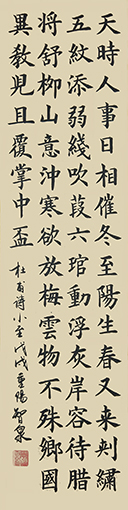 天時人事日相催冬至陽生春又来刺繡
五紋添弱綫吹葭六琯動浮灰岸容待腊
将舒柳山意沖寒欲放梅雲物不殊鄉國
異教兒且覆掌中盃
杜甫詩小至戊戌重陽智泉